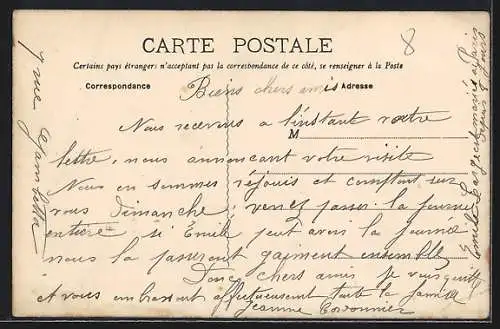 CARTE POSTALE
Certains pays étrangers n'acceptant pas la correspondance de ce côté, se renseigner à la Poste
Correspondance
Adresse
8
Biens chers amis
Nous recevons a l'instant votre
M
lettre, nous annoncant votre visite
Nous en sommes réjouis et comptant sur
vous Dimanche, venez passer la journée
entiere si Émile peut avoir la journée
nous la passeront gaiment ensemble
Donc chers amis je vous quitte
et vous embrassent affectueusement toute la famille
Jeanne
7 rue Gambetta